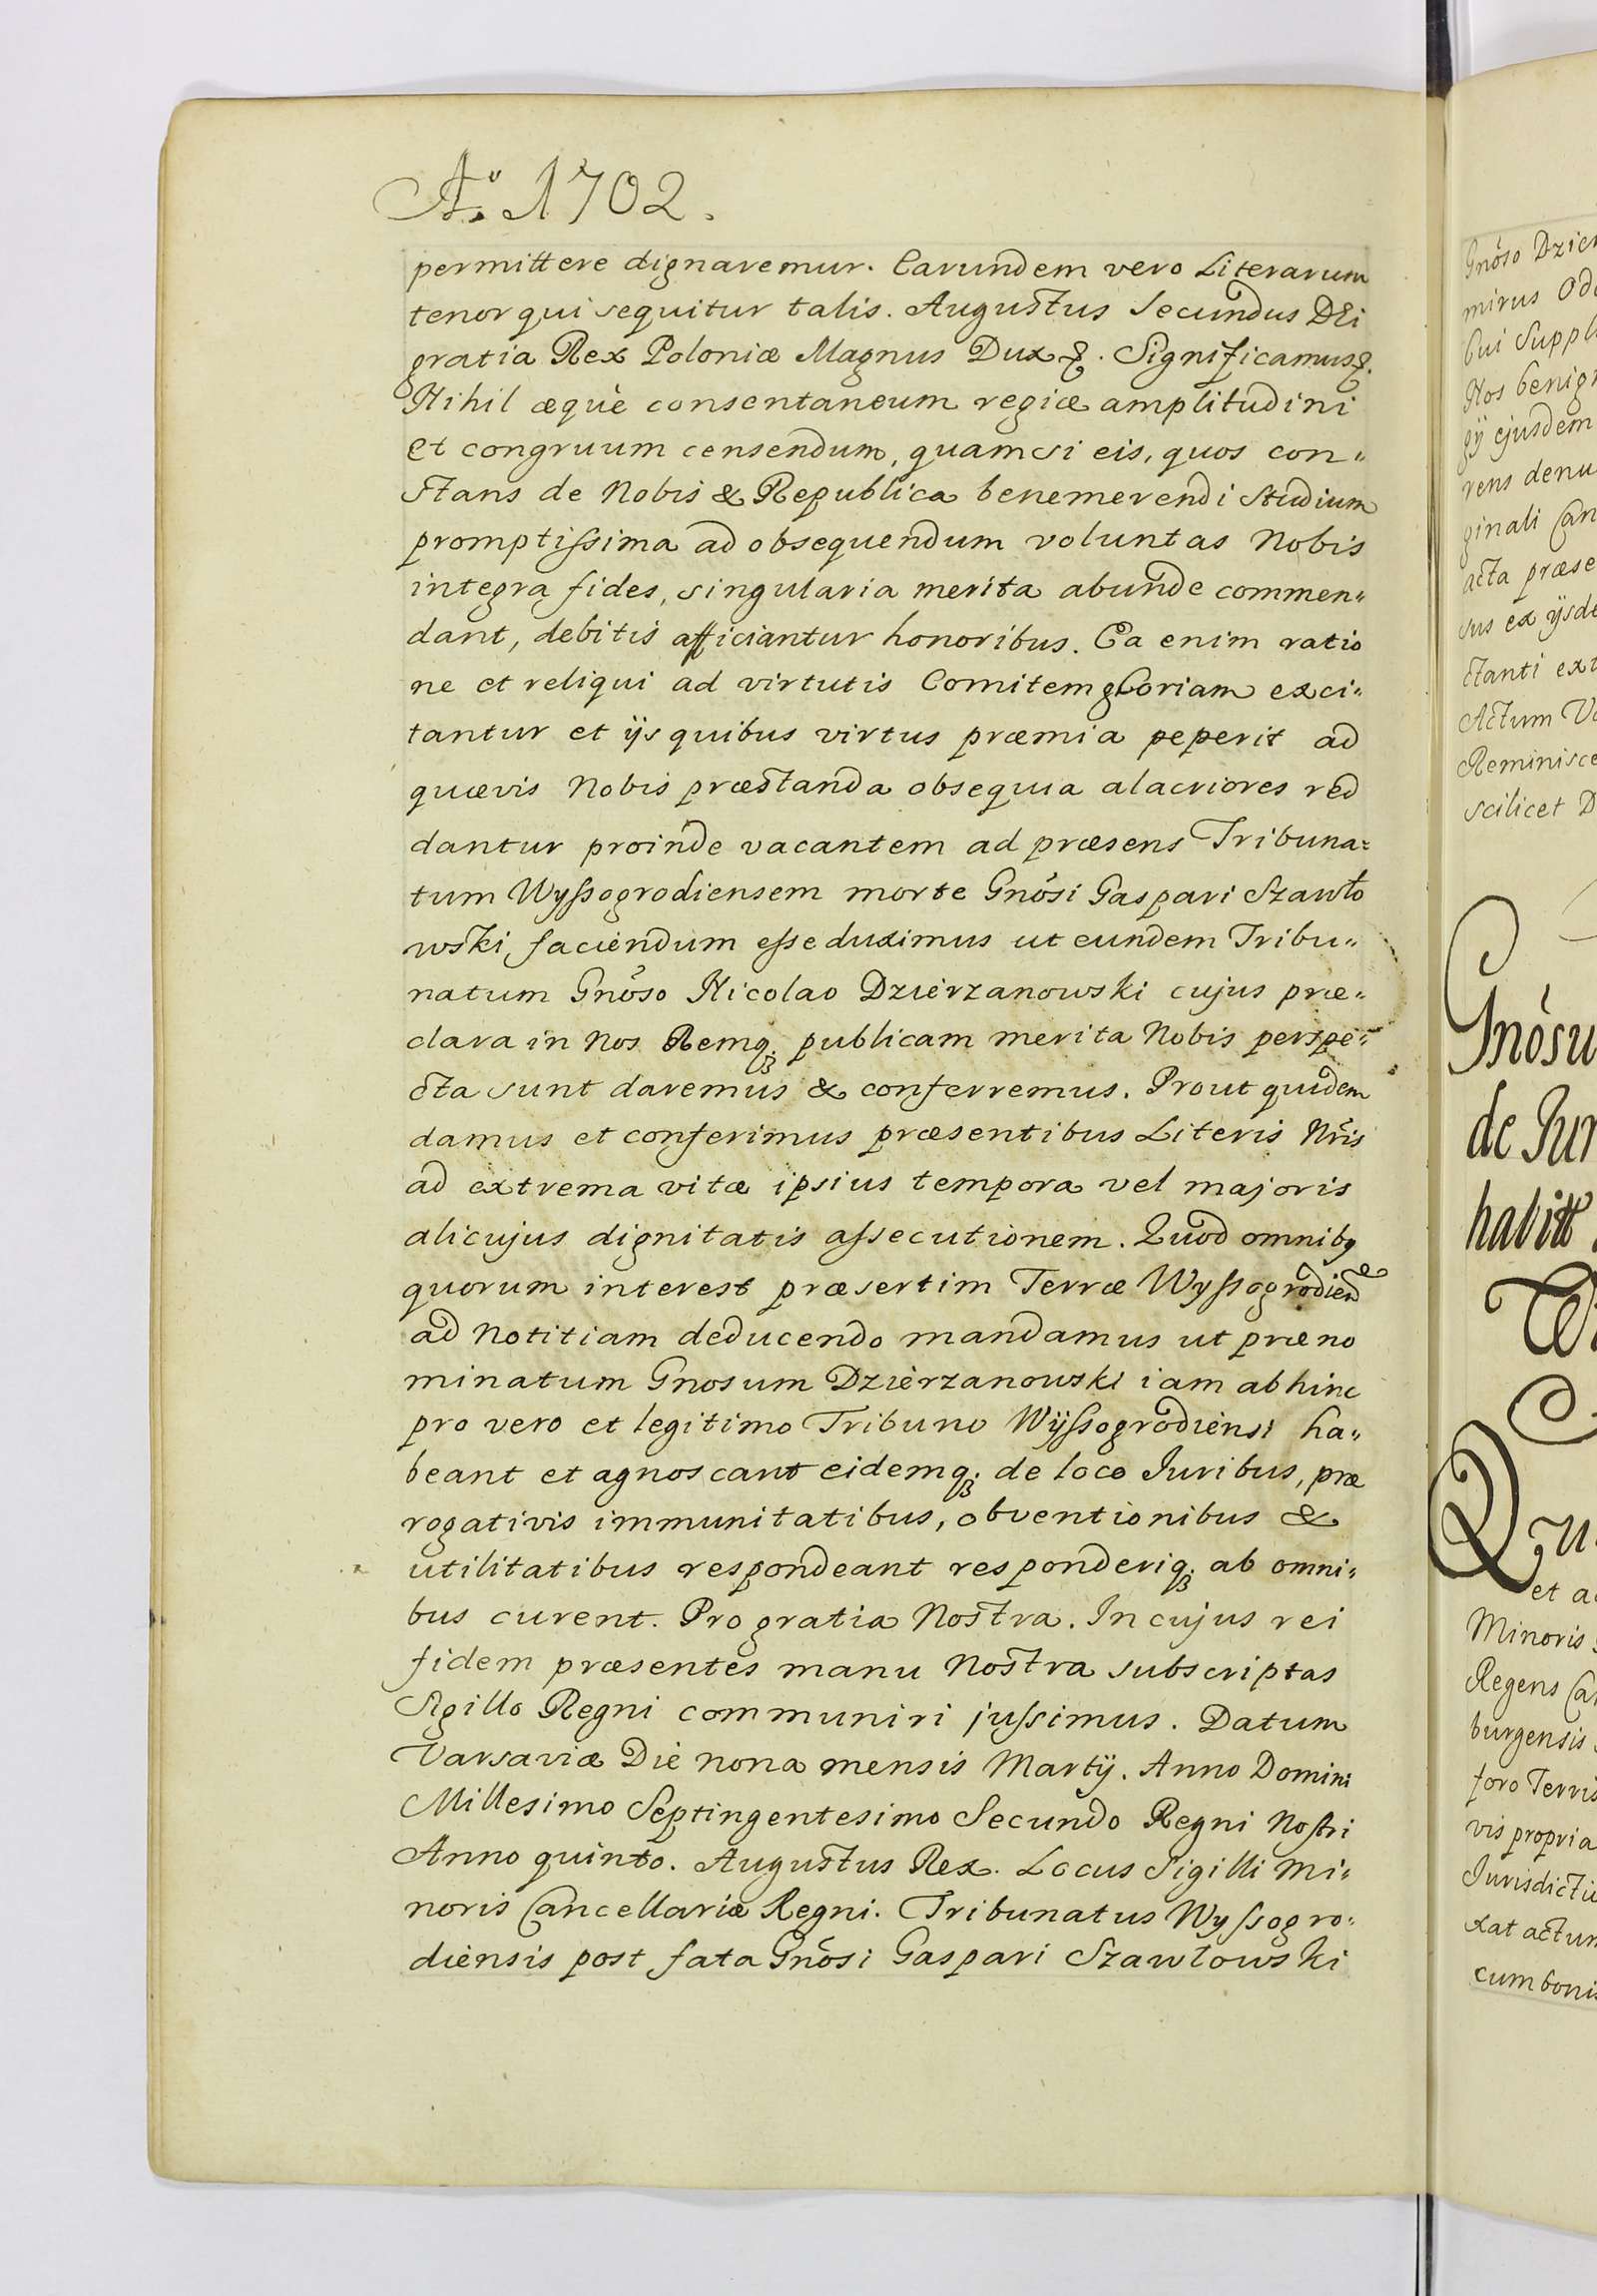 Aº. 1702.
permittere dignaremur. Earundem vero Literarum
tenor qui sequitur talis. Augustus Secundus DEi
gratia Rex Poloniæ Magnus Dux &. Significamus &.
Nihil æquè consentaneum regiæ amplitudini
et congruum censendum, quamsi eis, quos con„
stans de Nobis & Republica benemerendi studium
promptissima ad obsequendum voluntas Nobis
integra fides, singularia merita abunde commen„
dant, debitis afficiantur honoribus. Ea enim ratio
ne et reliqui ad virtutis Comitem gloriam exci„
tantur et ijs quibus virtus præmia peperit ad
quævis Nobis præstanda obsequia alacriores red
dantur proinde vacantem ad præsens Tribuna=
tum Wyssogrodiensem morte Gnōsi Gaspari Szawło
wski, faciendum esse duximus ut eundem Tribu„
natum Gnōso Nicolao Dzierzanowski cujus præ„
clara in Nos Remq; publicam merita Nobis perspe„
cta sunt daremus & conferremus. Prout quidem
damus et conferimus præsentibus Literis Nr̄is
ad extrema vitæ ipsius tempora vel majoris
alicujus dignitatis assecutionem. Quod omnibq
quorum interest præsertim Terræ Wyssogrodien̄
ad Notitiam deducendo mandamus ut præno
minatum Gnosum Dzierzanowski iam abhinc
pro vero et legitimo Tribuno Wÿssogrodiensi ha„
beant et agnoscant eidemq; de loco Iuribus, præ
rogativis immunitatibus, obventionibus &
utilitatibus respondeant responderiq; ab omni„
bus curent. Pro gratia Nostra. In cujus rei
fidem præsentes manu Nostra subscriptas
Sigillo Regni communiri jussimus. Datum
Varsaviæ Die nona mensis Martij. Anno Domini
Millesimo Septingentesimo Secundo Regni Nostri
Anno quinto. Augustus Rex. Locus Sigilli Mi„
noris Cancellariæ Regni. Tribunatus Wyssogro„
diensis post fata Gnōsi Gaspari Szawłowski
Gnōso
mirus
Cui
Nos
gij ejusdem
rens
ginali
acta
sus ex
ctanti
Actum
scilicet
de
habitt
et
Minoris
Regens
burgensis
foro
vis propria
xat
cum